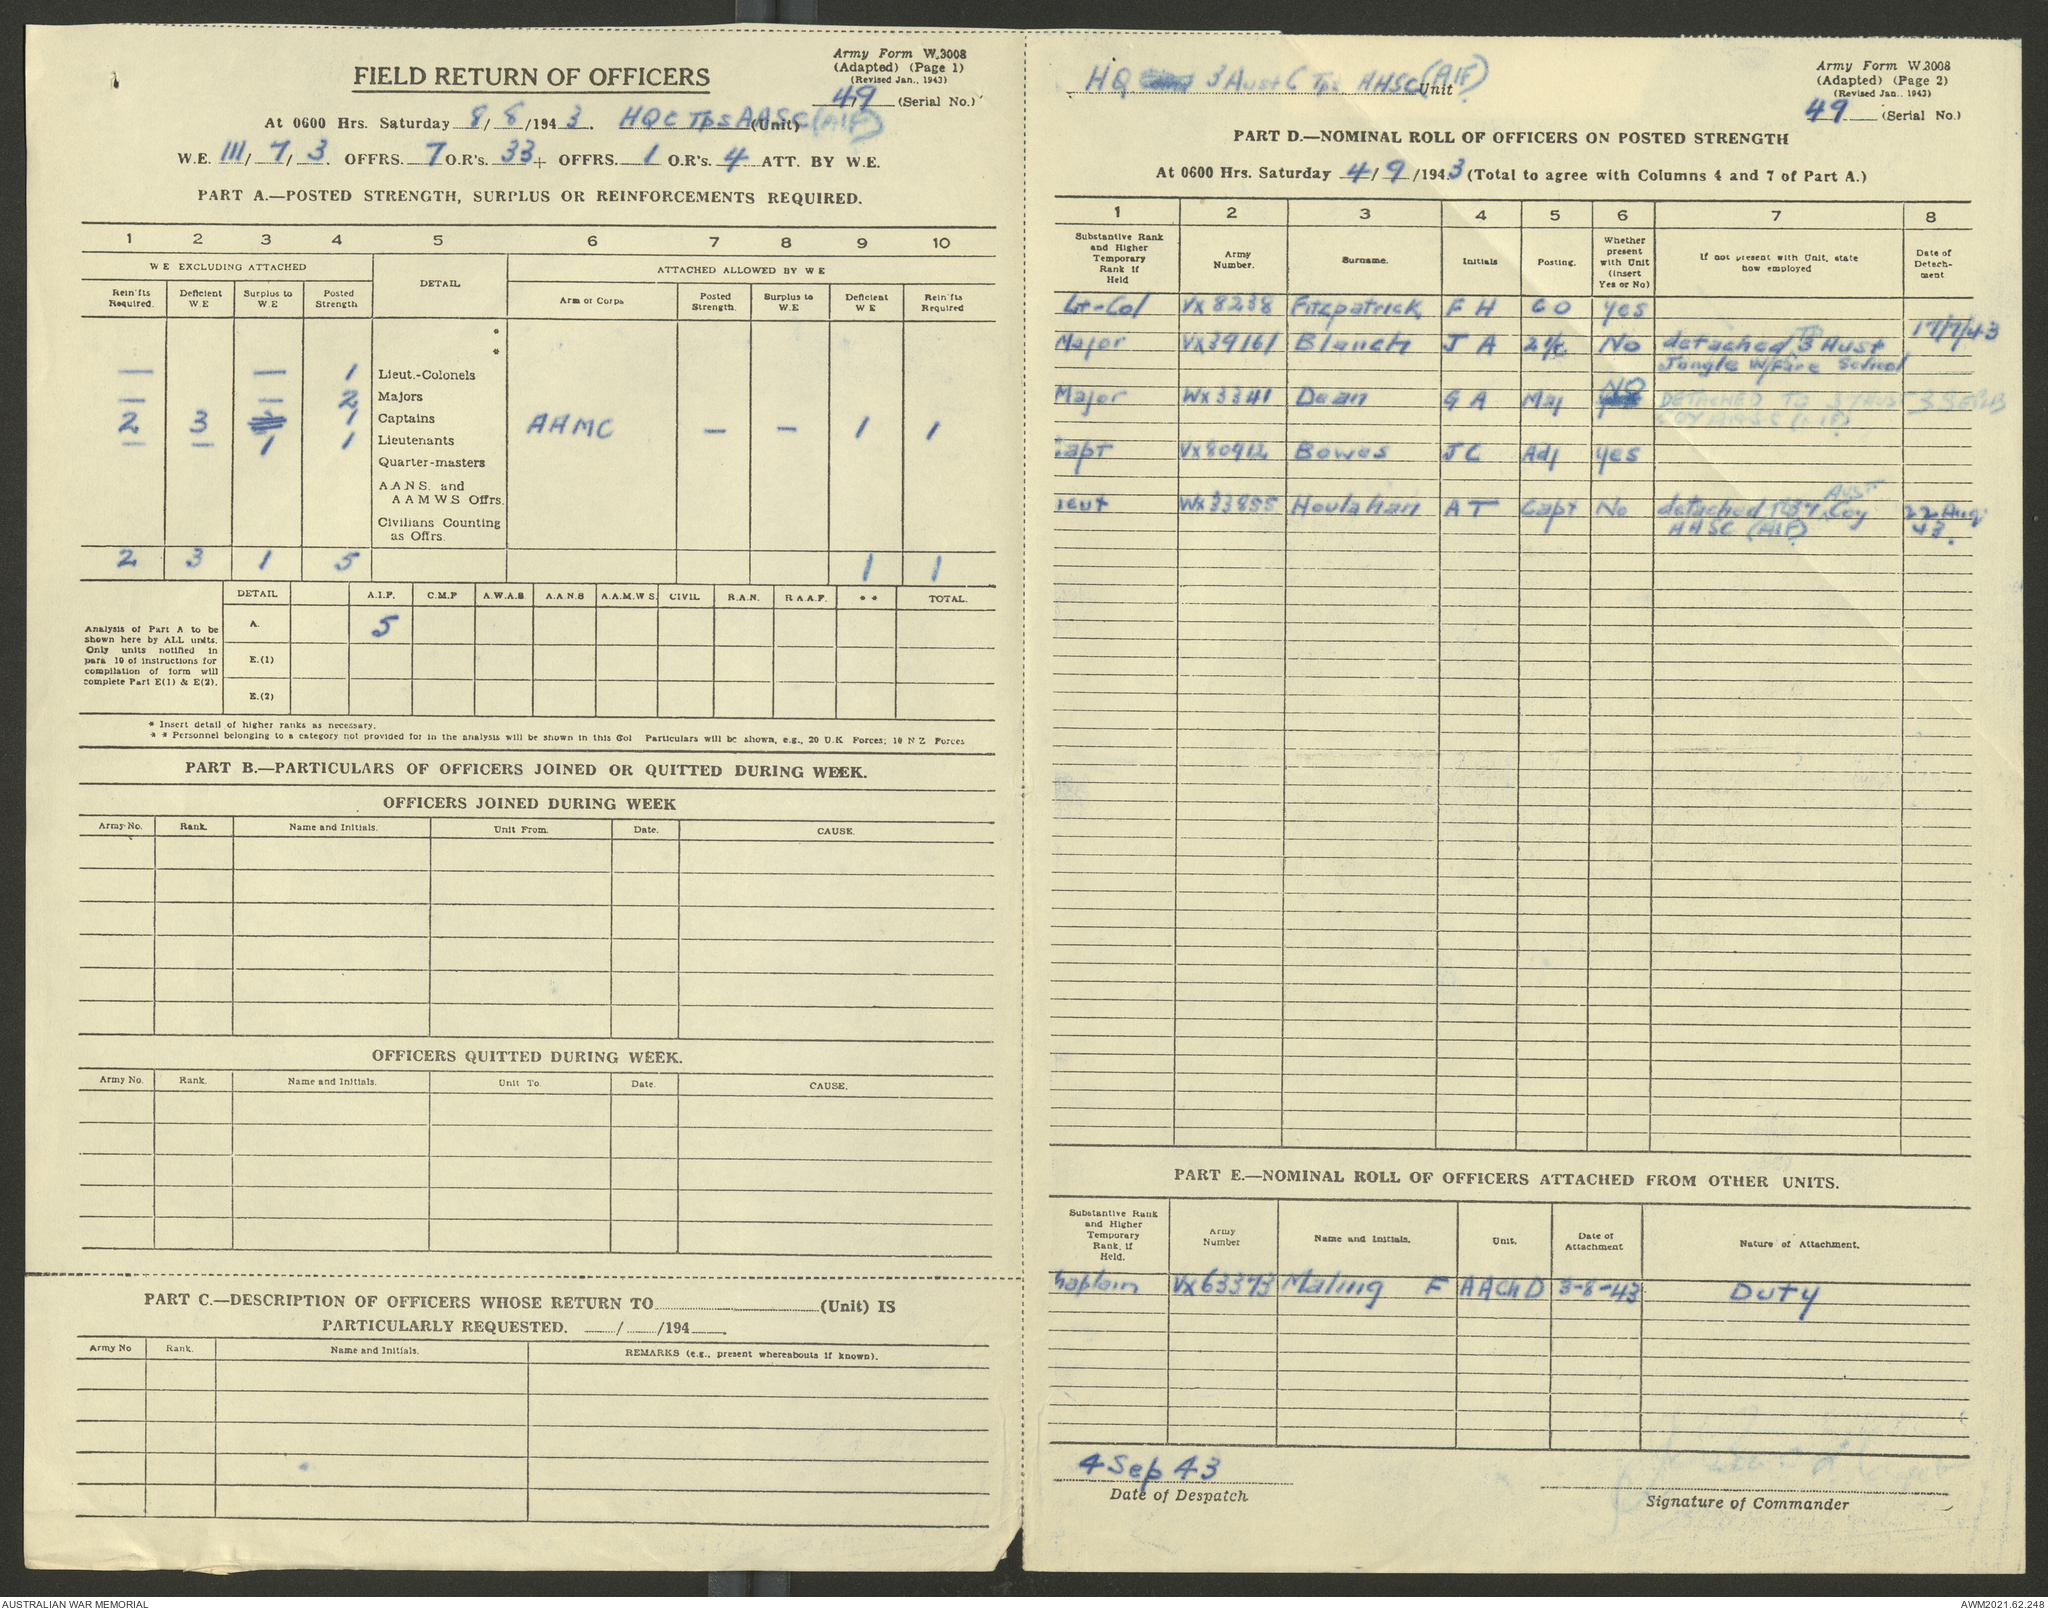 Army Form W.3008
(Adapted) (Page 1)
(Revised Jan., 1943)
FIELD RETURN OF OFFICERS
49 (Serial No.)
At 0600 Hrs. Saturday 8/8/1943. HQ C Tps AASC (AIF) (Unit)
W.E. III/7/3. OFFRS. 7 O.R's. 33 + OFFRS. 1 O.R's. 4 ATT. BY W.E.
PART A.—POSTED STRENGTH, SURPLUS OR REINFORCEMENTS REQUIRED.
1 2 3 4 5 6 7 8 9 10
W E EXCLUDING ATTACHED DETAIL ATTACHED ALLOWED BY W E
Rein'fts Required. Deficient W.E Surplus to W.E Posted Strength Arm or Corps Posted Strength. Surplus to W.E Deficient W E Rein'fts Required
*
*
— — 1 Lieut.-Colonels
— — 2 Majors
2 3 1 Captains AAMC — — 1 1
— — 1 1 Lieutenants
Quarter-masters
A.A.N.S. and
A A M W.S Offrs.
Civilians Counting
as Offrs.
2 3 1 5 1 1
DETAIL A.I.F. C.M.F A.W.A.S. A.A.N.S A.A.M.W S. CIVIL R.A.N. R A.A.F. * * TOTAL.
Analysis of Part A to be shown here by ALL units. Only units notified in para 10 of instructions for compilation of form will complete Part E(1) & E(2).
A. 5
E.(1)
E.(2)
* Insert detail of higher ranks as necessary.
* * Personnel belonging to a category not provided for in the analysis will be shown in this Col Particulars will be shown, e.g., 20 U.K Forces; 10 N Z Forces
PART B.—PARTICULARS OF OFFICERS JOINED OR QUITTED DURING WEEK.
OFFICERS JOINED DURING WEEK
Army No. Rank. Name and Initials. Unit From. Date. CAUSE.
OFFICERS QUITTED DURING WEEK.
Army No. Rank. Name and Initials. Unit To. Date. CAUSE.
PART C.—DESCRIPTION OF OFFICERS WHOSE RETURN TO (Unit) IS
PARTICULARLY REQUESTED. / /194 .
Army No Rank. Name and Initials. REMARKS (e.g., present whereabouts if known).
HQ 3 Aust C Tps AASC (AIF) Unit
Army Form W.3008
(Adapted) (Page 2)
(Revised Jan., 1943)
49 (Serial No.)
PART D.—NOMINAL ROLL OF OFFICERS ON POSTED STRENGTH
At 0600 Hrs. Saturday 4/9/1943 (Total to agree with Columns 4 and 7 of Part A.)
1 2 3 4 5 6 7 8
Substantive Rank and Higher Temporary Rank if Held Army Number. Surname. Initials Posting. Whether present with Unit (insert Yes or No) If not present with Unit, state how employed Date of Detachment
Lt-Col VX8238 Fitzpatrick F H CO yes
Major VX39161 Blanch J A 2i/c No detached to 3 Aust 17/7/43
Jungle W/Fare School
Major WX3341 Dean G A Maj NO DETACHED TO 37 AUST 3 SEP 43
COY AASC (AIF)
Capt VX80912 Bowes J C Adj yes
ieut WX33855 Houlahan A T Capt No detached to 37 AUST Coy 22 Aug
AASC (AIF) 43.
PART E.—NOMINAL ROLL OF OFFICERS ATTACHED FROM OTHER UNITS.
Substantive Rank and Higher Temporary Rank, if Held. Army Number Name and Initials. Unit. Date of Attachment Nature of Attachment.
haplain VX63373 Maling F AAChD 3-8-43 Duty
4 Sep 43
Date of Despatch
Signature of Commander
AUSTRALIAN WAR MEMORIAL
AWM2021.62.248